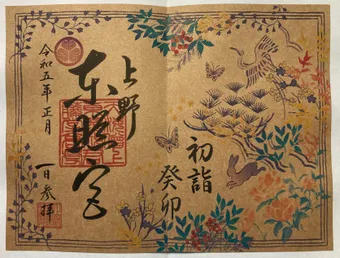 初詣
癸卯
上野
東照宮
令和五年 正月
一日参拝